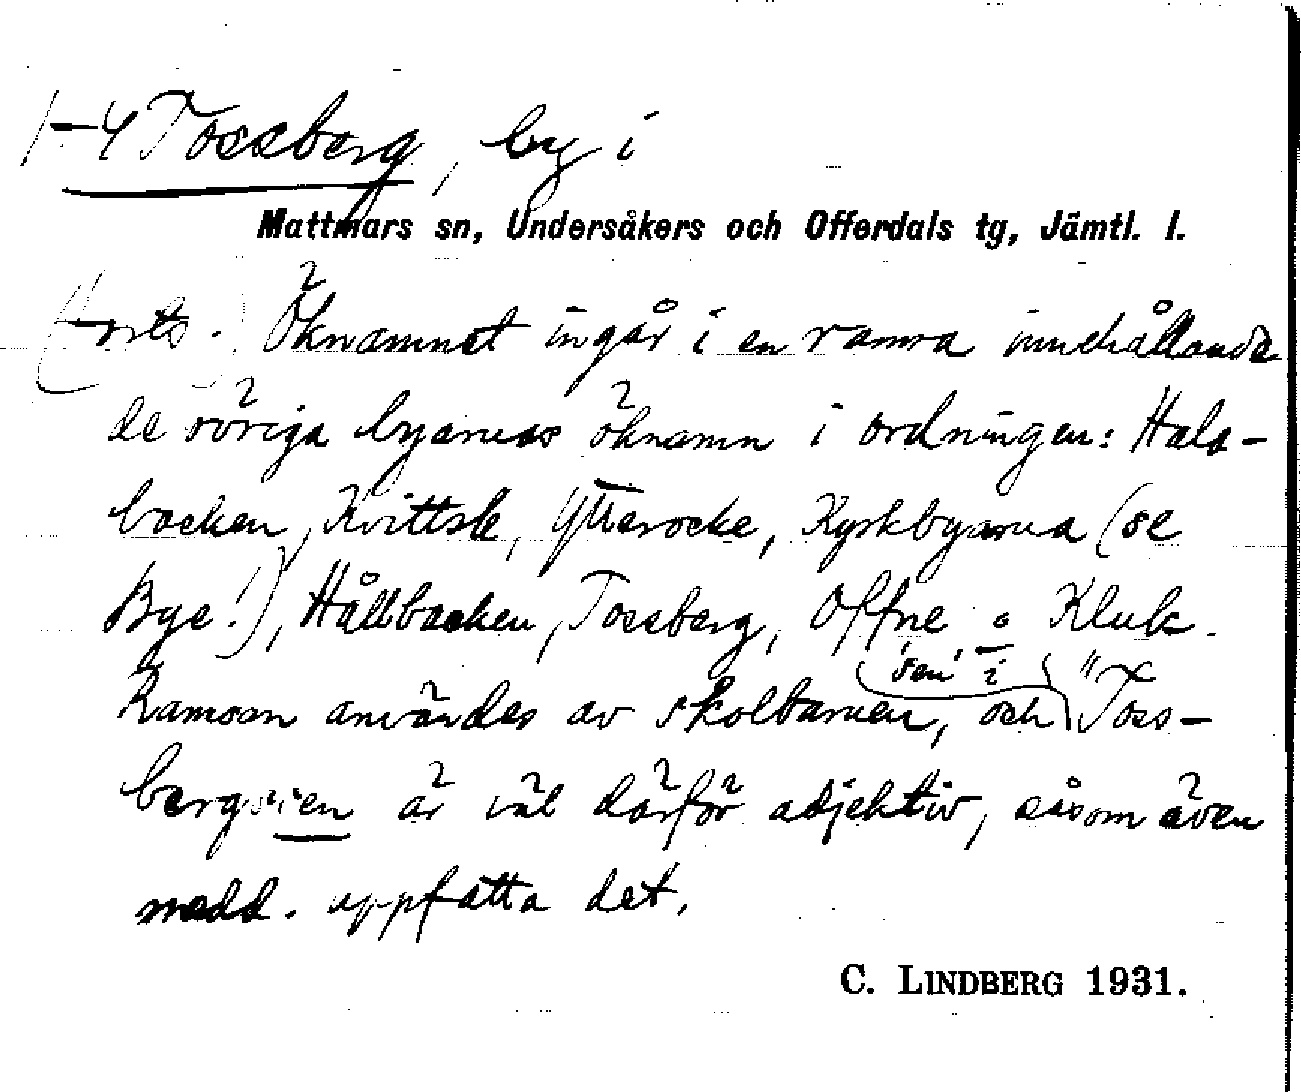 1-4 Tossberg, by i
Mattmars sn, Undersåkers och Offerdals tg, Jämtl. l.
(Forts.) Öknamnet ingår i en ramsa innehållande
de övriga byarnas öknamn i ordningen: Hals-
backen, Kvittsle, Ytterocke, Kyrkbyarna (se
Bye!), Hållbacken, Tossberg, Offne o Kluk.
'sen' i
Ramsan användes av skolbarnen, och "Toss-
bergsien är väl därför adjektiv, såsom även
medd. uppfatta det.
C. LINDBERG 1931.